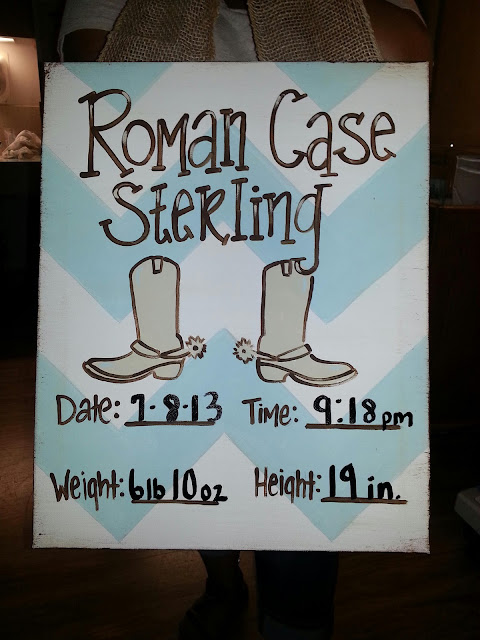 Roman Case
Sterling
Date: 7-8-13 Time: 9:18pm
Weight: 6lb 10oz Height: 19 in.